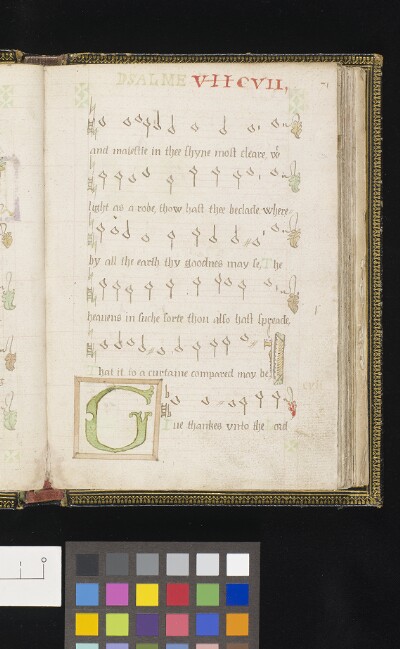 PSALME VII CVII,
71
and maiestie in thee shyne most cleare, wt
light as a robe, thow hast thee beclade where
by all the earth thy goodnes may se, The
heauens in suche sorte thou also hast spreade,
That it, to a curtaine compared may be
CVII
Giue thankes vnto the Lord